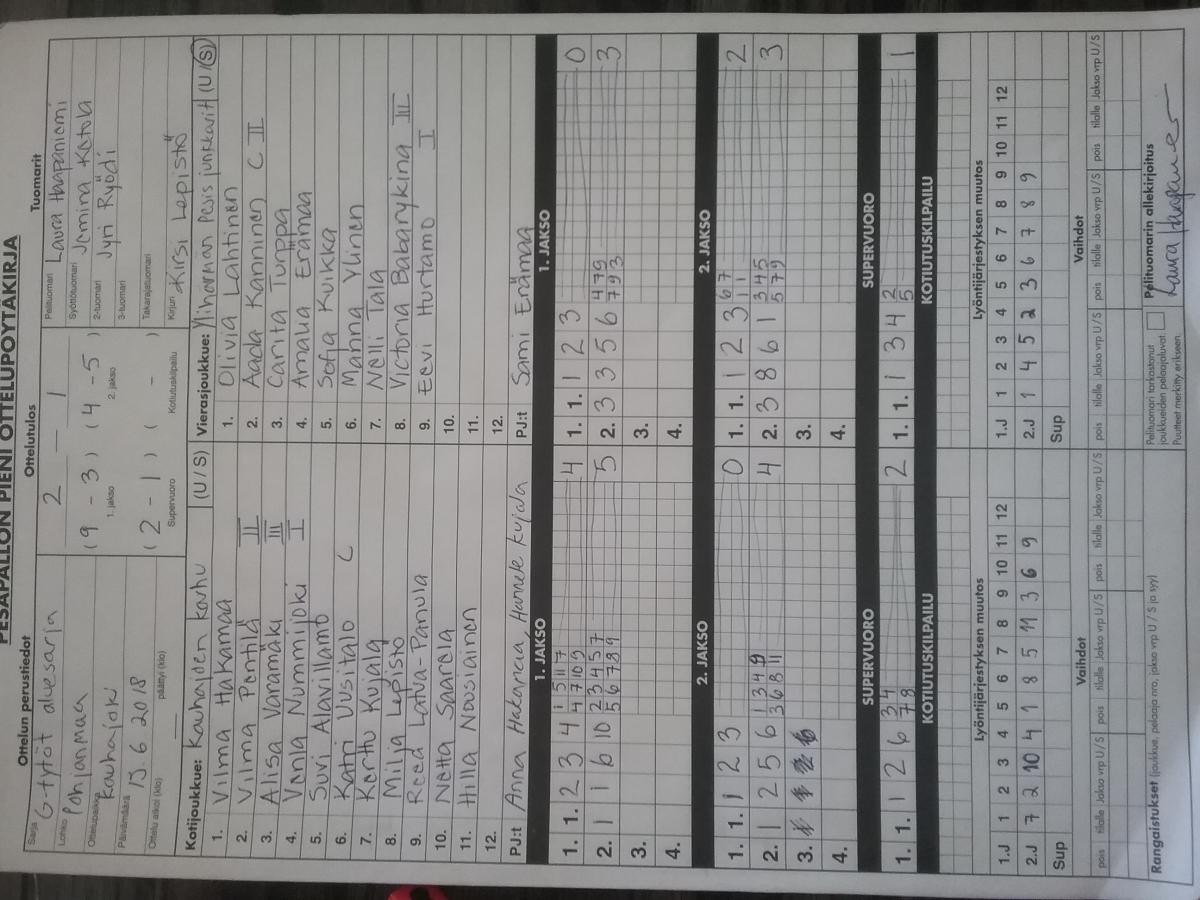 PESÄPALLON PIENI OTTELUPÖYTÄKIRJA
Ottelun perustiedot
Ottelutulos
Tuomarit
Sarja G-tytöt aluesarja
Lohko Pohjanmaa
Ottelupaikka Kauhajoki
Päivämäärä 13.6.2018
Ottelu alkoi (klo) päättyi (klo)
2 – 1
(9 - 3) (4 - 5)
1. jakso 2. jakso
(2 - 1) ( - )
Supervuoro Kotiutuskilpailu
Pelituomari Laura Haapaniemi
Syöttötuomari Jemina Ketola
2-tuomari Jyri Ryödi
3-tuomari
Takarajatuomari
Kirjuri Kirsi Lepistö
Kotijoukkue: Kauhajoen karhu (U / S)
1. Vilma Hakamaa
2. Vilma Penttilä II
3. Alisa Varamäki III
4. Venla Nummijoki I
5. Suvi Alavillamo
6. Katri Uusitalo C
7. Kerttu Kujala
8. Milja Lepistö
9. Reea Latva-Panula
10. Netta Saarela
11. Hilla Nousiainen
12.
PJ:t Anna Hakancia, Hannele Kujala
Vierasjoukkue: Ylihärmän Pesis junkkarit (U / S)
1. Olivia Lahtinen
2. Aada Kanninen C II
3. Carita Tuppa
4. Amalia Erämaa
5. Sofia Kuikka
6. Mahna Ylinen
7. Nelli Tala
8. Victoria Babarykina III
9. Eevi Hurtamo I
10.
11.
12.
PJ:t Sami Erämaa
1. JAKSO
1. 1. 2 3 4 1 5 11 7 4
4 7 10 9
2. 1 1 6 10 2 3 4 5 7 5
5 6 7 8 9
3.
4.
1. JAKSO
1. 1. 1 2 3 0
2. 3 3 5 6 4 7 9 3
7 9 3
3.
4.
2. JAKSO
1. 1. 1 2 3 0
2. 1 2 5 6 1 3 4 9 4
3 6 8 11
3.
4.
2. JAKSO
1. 1. 1 2 3 6 7 2
1 1 1
2. 3 8 6 1 3 4 5 3
5 7 9
3.
4.
SUPERVUORO
1. 1. 1 2 6 3 4 2
7 8
SUPERVUORO
1. 1. 1 3 4 2 1
5
KOTIUTUSKILPAILU
KOTIUTUSKILPAILU
Lyöntijärjestyksen muutos
1.J 1 2 3 4 5 6 7 8 9 10 11 12
2.J 7 2 10 4 1 8 5 11 3 6 9
Sup
Lyöntijärjestyksen muutos
1.J 1 2 3 4 5 6 7 8 9 10 11 12
2.J 1 4 5 2 3 6 7 8 9
Sup
Vaihdot
pois tilalle Jakso vrp U / S pois tilalle Jakso vrp U / S pois tilalle Jakso vrp U / S
Vaihdot
pois tilalle Jakso vrp U / S pois tilalle Jakso vrp U / S pois tilalle Jakso vrp U / S
Rangaistukset (joukkue, pelaaja nro, jakso vrp U / S ja syy)
Pelituomari tarkastanut
joukkueiden pelaajaluvat:
Puutteet merkitty erikseen
Pelituomarin allekirjoitus
Laura Haapaniemi